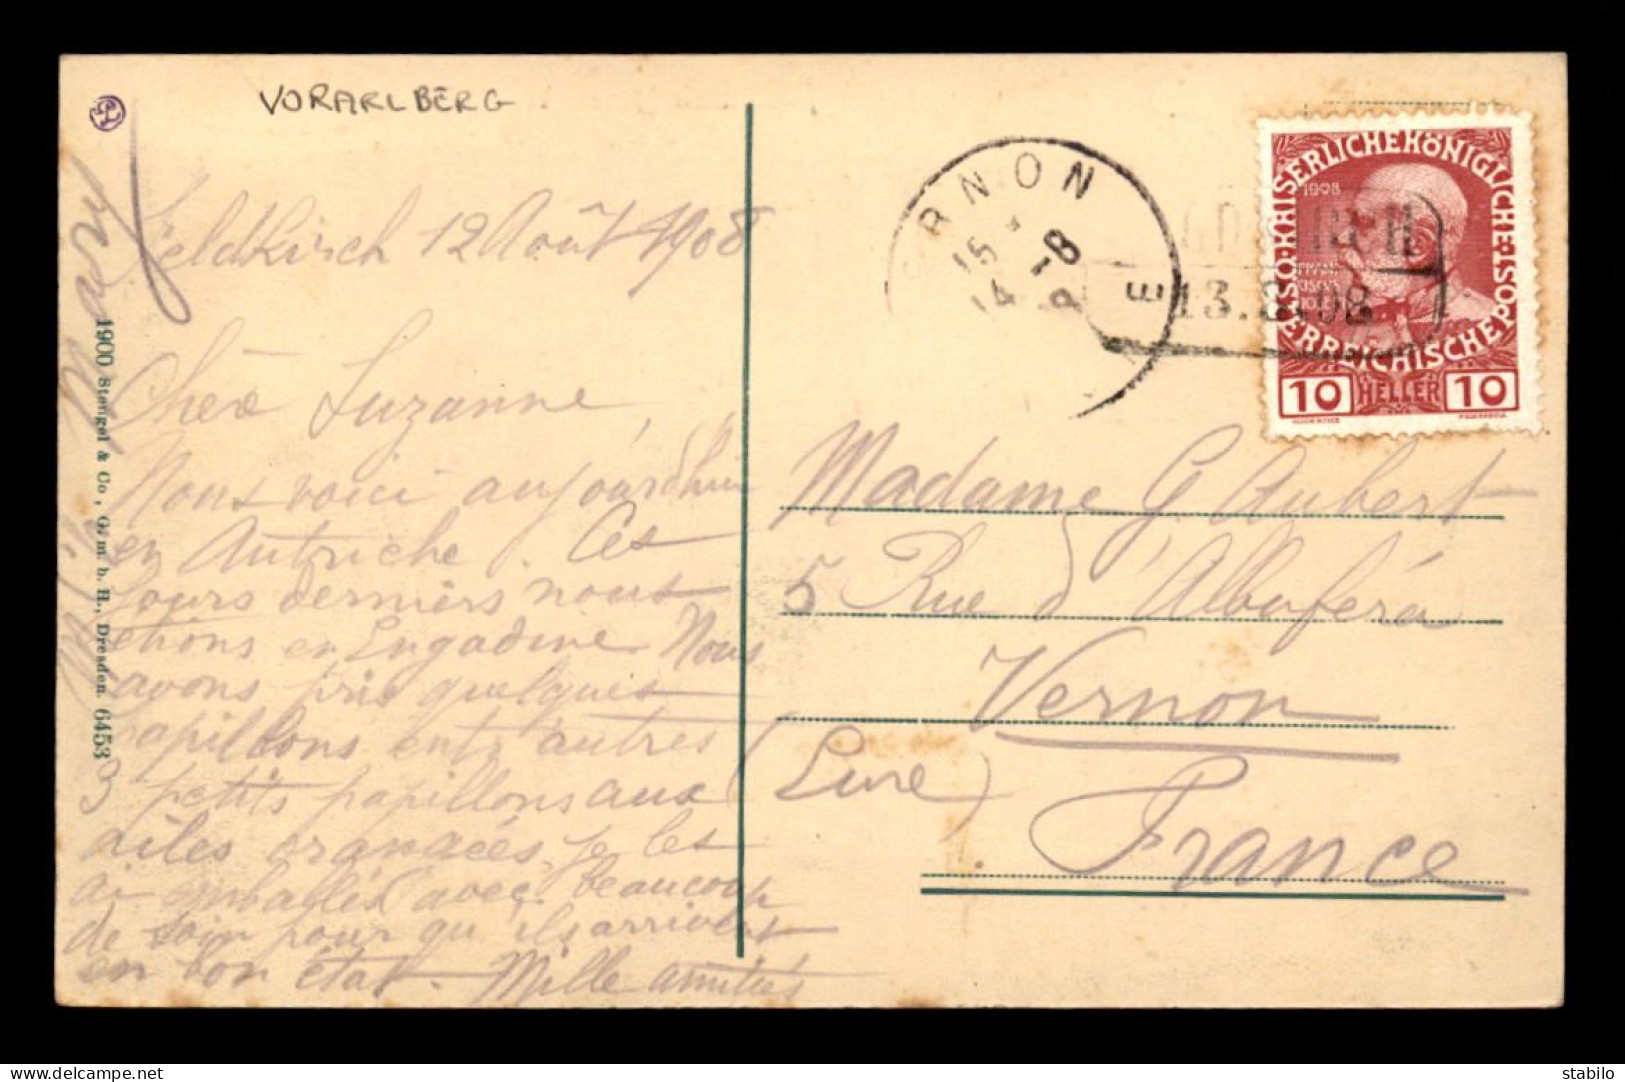 VORARLBERG
Feldkirch 12 Août 1908
Chère Suzanne,
Nous voici aujourd'hui
en Autriche. Ces
jours derniers nous
étions en Engadine. Nous
avons pris quelques
papillons entr'autres
3 petits papillons aux
ailes orangées. je les
ai emballés avec beaucoup
de soin pour qu'ils arrivent
en bon état. Mille amitiés
1900 Stengel & Co., G. m. b. H., Dresden. 64533
RNON
15 * 8
14 - 8
E
13.8.08
KAISERLICHEKÖNIGLICHE
ÖSTERREICHISCHE POST
1908
10 HELLER 10
Madame G. Aubert
5 Rue d'Albuféra
Vernon
(Eure)
France